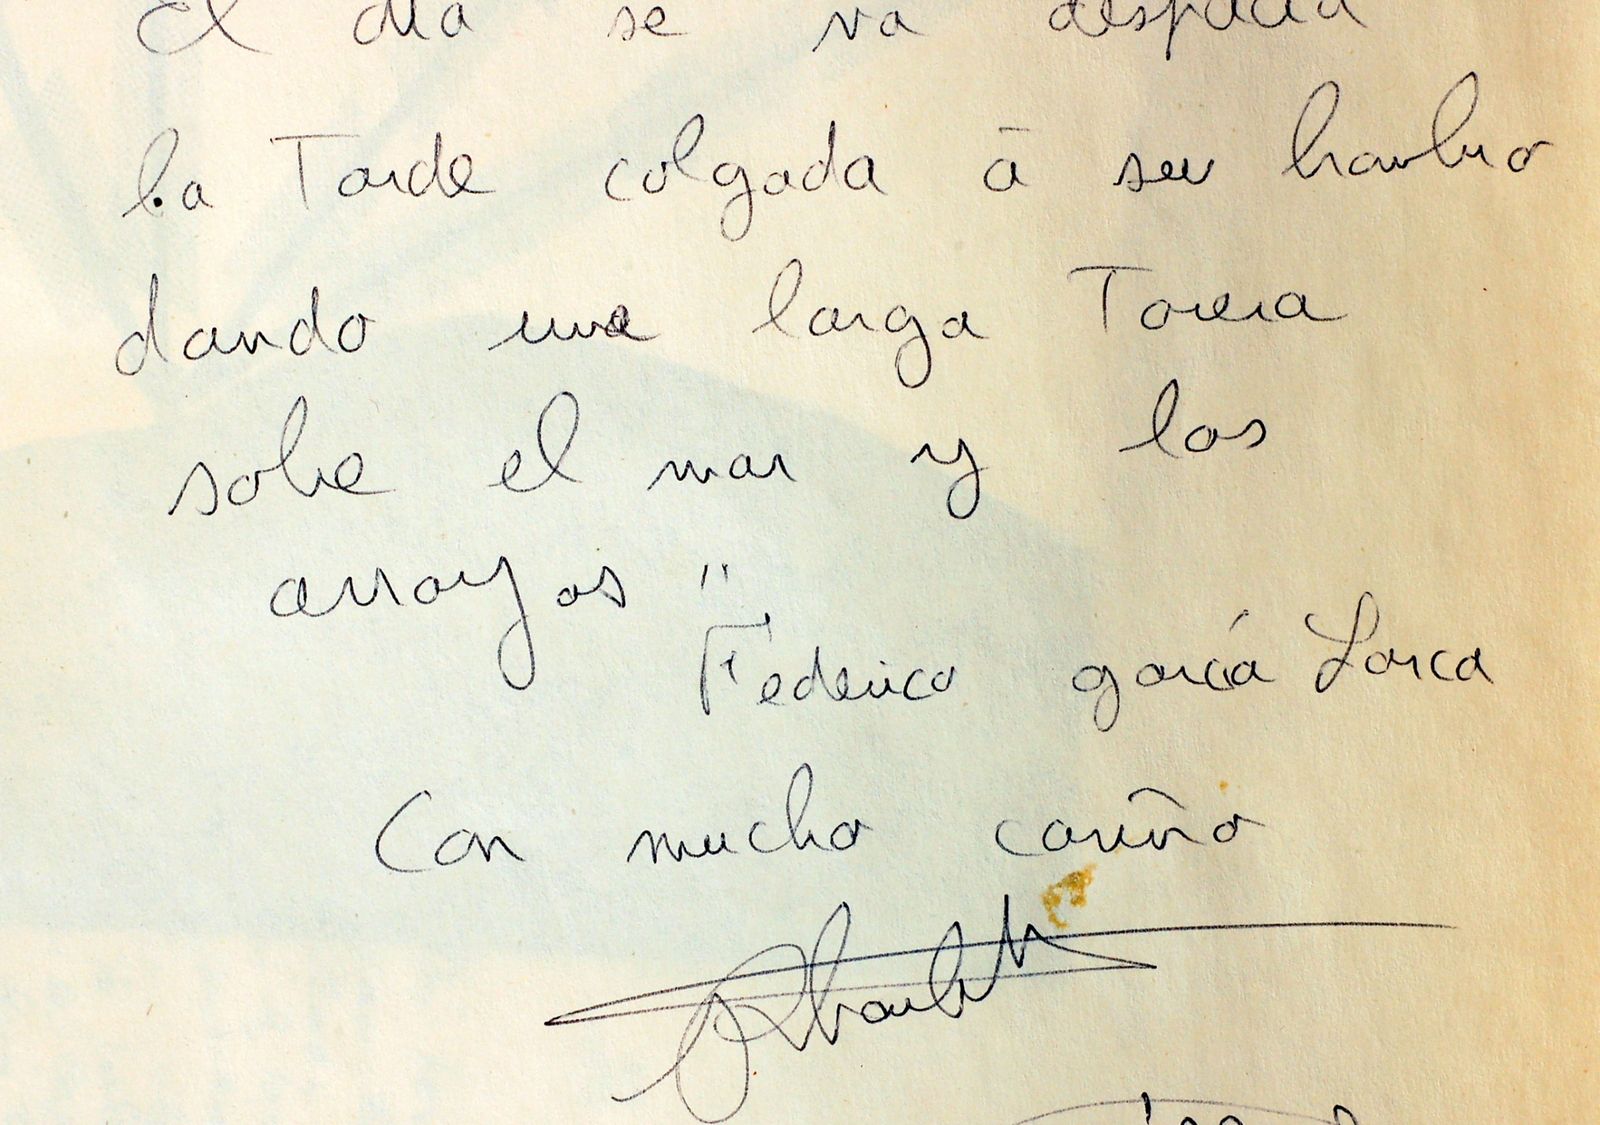 El día se va despacio
la Tarde colgada a su hombro
dando una larga Torera
sobre el mar y los
arroyos"
Federico garcía Lorca
Con mucho cariño